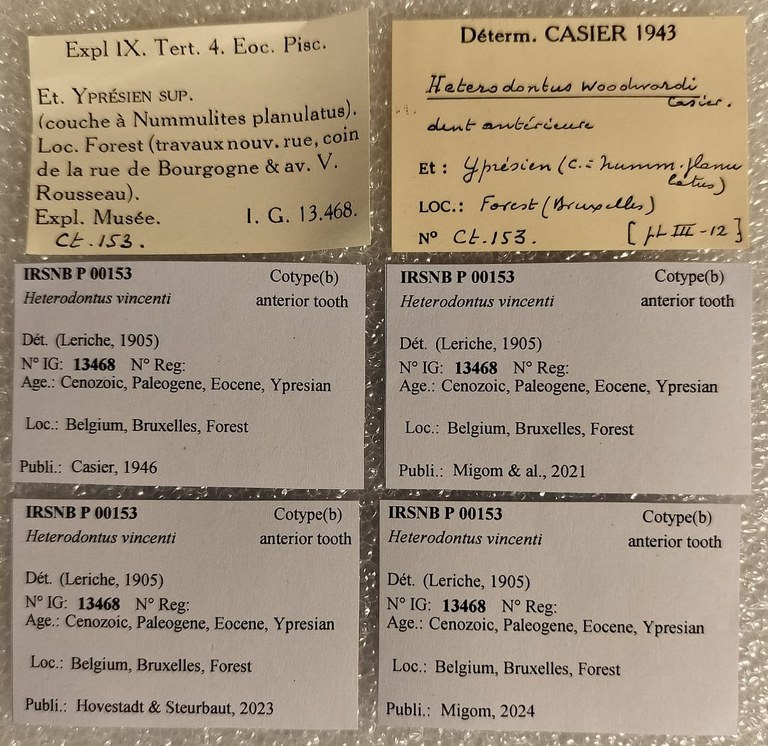 Expl IX. Tert. 4. Eoc. Pisc.
Et. YPRÉSIEN SUP.
(couche à Nummulites planulatus).
Loc. Forest (travaux nouv. rue, coin
de la rue de Bourgogne & av. V.
Rousseau).
Expl. Musée. I. G. 13.468.
Ct. 153.
Déterm. CASIER 1943
Heterodontus woodwardi
Casier.
dent antérieure
Et : Yprésien (C. = numm. planu
latus)
LOC.: Forest (Bruxelles)
N° Ct. 153. [pl III - 12]
IRSNB P 00153 Cotype(b)
Heterodontus vincenti anterior tooth
Dét. (Leriche, 1905)
N° IG: 13468 N° Reg:
Age.: Cenozoic, Paleogene, Eocene, Ypresian
Loc.: Belgium, Bruxelles, Forest
Publi.: Casier, 1946
IRSNB P 00153 Cotype(b)
Heterodontus vincenti anterior tooth
Dét. (Leriche, 1905)
N° IG: 13468 N° Reg:
Age.: Cenozoic, Paleogene, Eocene, Ypresian
Loc.: Belgium, Bruxelles, Forest
Publi.: Migom & al., 2021
IRSNB P 00153 Cotype(b)
Heterodontus vincenti anterior tooth
Dét. (Leriche, 1905)
N° IG: 13468 N° Reg:
Age.: Cenozoic, Paleogene, Eocene, Ypresian
Loc.: Belgium, Bruxelles, Forest
Publi.: Hovestadt & Steurbaut, 2023
IRSNB P 00153 Cotype(b)
Heterodontus vincenti anterior tooth
Dét. (Leriche, 1905)
N° IG: 13468 N° Reg:
Age.: Cenozoic, Paleogene, Eocene, Ypresian
Loc.: Belgium, Bruxelles, Forest
Publi.: Migom, 2024